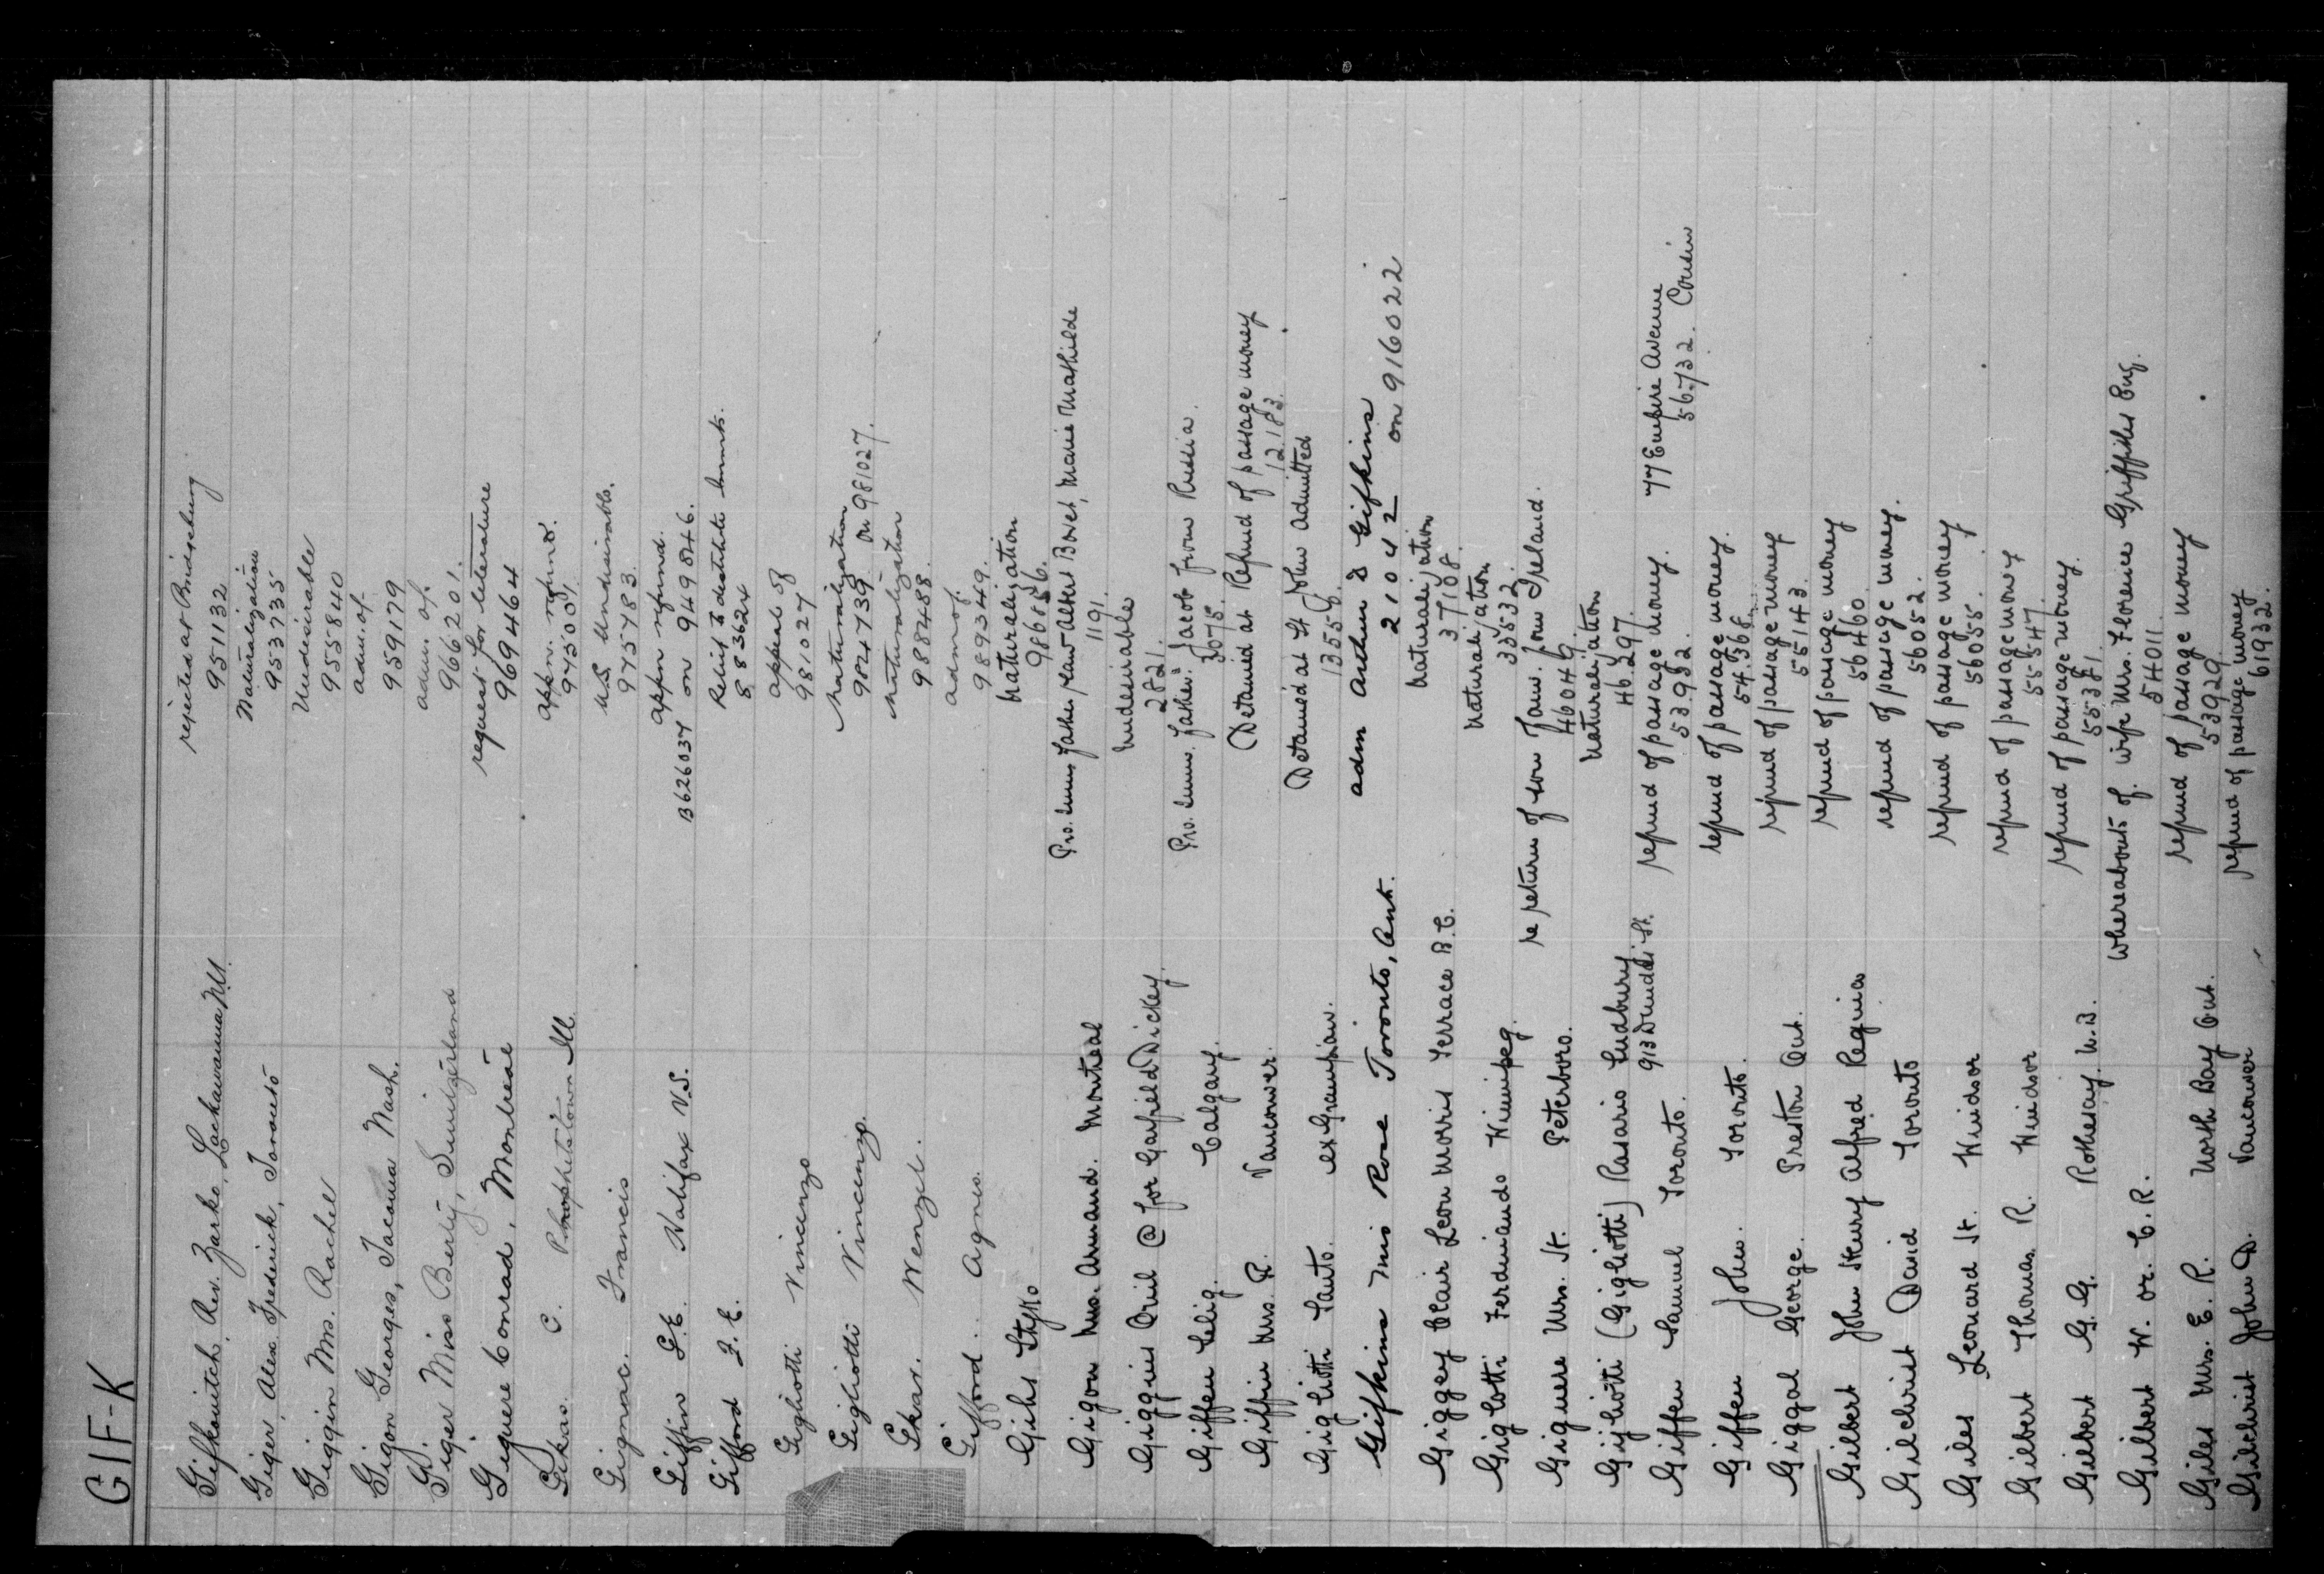 GIF-K
Gifkovitch, Rev. Zarko, Lackawanna rejected at Bridgeburg
951132
Giger, Alex Frederick, Toronto Naturalization
953735
Giggin Mrs. Rachel Undesirable
955840
Gigon Georges, Tacoma Wash. adm. of.
959179
Giger Miss Berty, Switzerland adm. of.
966201.
Giguere Conrad, Montreal request for literature
969464
Gikas. C. Prophetstown Ill. appn. refund.
975001
Gignac. Francis U.S. Undesirable.
975783.
Giffin G.E. Halifax N.S. appn refund.
B626037 on 949846.
Gifford F. E. Relief to destitute
883624
Gigliotti Vincenzo appeal of
981027
Gigliotti Vincenzo. Naturalization
984739 on 981027.
Gikas. Wenzel. Naturalization
988488.
Gifford. Agnes. adm of.
989349.
Gihs Styko Naturalization
986856.
Gigon Mrs. Armand. Montreal Pro. Imm. father-in-law Albert Bovet, Marie Mathilde
1191.
Giggins Oril @ for Garfield Dickey. Undesirable
2821.
Giffen Selig. Calgary. Pro. Imm. father. Jacob from Russia.
3075.
Giffin Mrs. R. Vancouver. Detained at Refund of passage money
12183.
Gigliotti Santo. ex Grampian. Detained at St John Admitted
13556.
Gifkins Miss Rose Toronto, Ont. adm Arthur D Gifkins
21042 on 916022
Giggey Blair Leon Morris Terrace B.C. Naturalization
37108.
Giglotti Ferdinando Winnipeg. Naturalization
33532.
Giguere Mrs. St. Peterboro. re return of son from Ireland.
46046.
Gigliotti (Gigliotti) Rosario Sudbury. Naturalization
46297.
Giffen Samuel Toronto. 913 St. refund of passage money. 77 Empire Avenue
53982. 56732. Cousin
Giffen John. Toronto. refund of passage money.
54368.
Giggal George. Preston Ont. refund of passage money
55143.
Gilbert John Henry Alfred Regina refund of passage money
56460.
Gilchrist David Toronto refund of passage money.
56052.
Giles Leonard St. Windsor refund of passage money
56055.
Gilbert Thomas R. Windsor refund of passage money
55547.
Gilbert G. G. Rothesay. N.B. refund of passage money.
55381.
Gilbert W. or. C. R. Whereabouts of. wife Mrs. Florence Griffiths Eng.
54011.
Giles Mrs. E. R. North Bay Ont. refund of passage money
53929.
Gilchrist John D. Vancouver refund of passage money
61932.